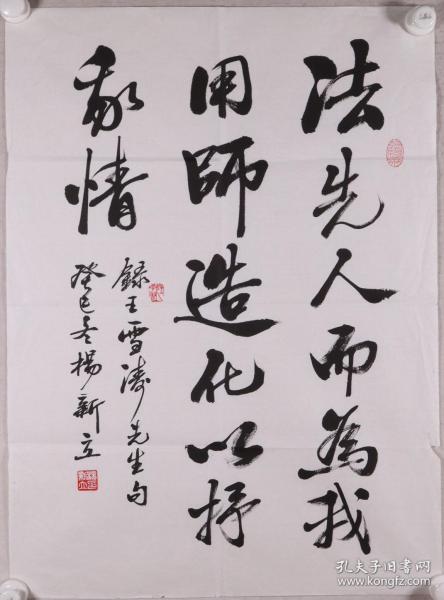 法先人而為我
用師造化以抒
我情
録王雪濤先生句
癸巳冬楊新立
孔夫子旧书网